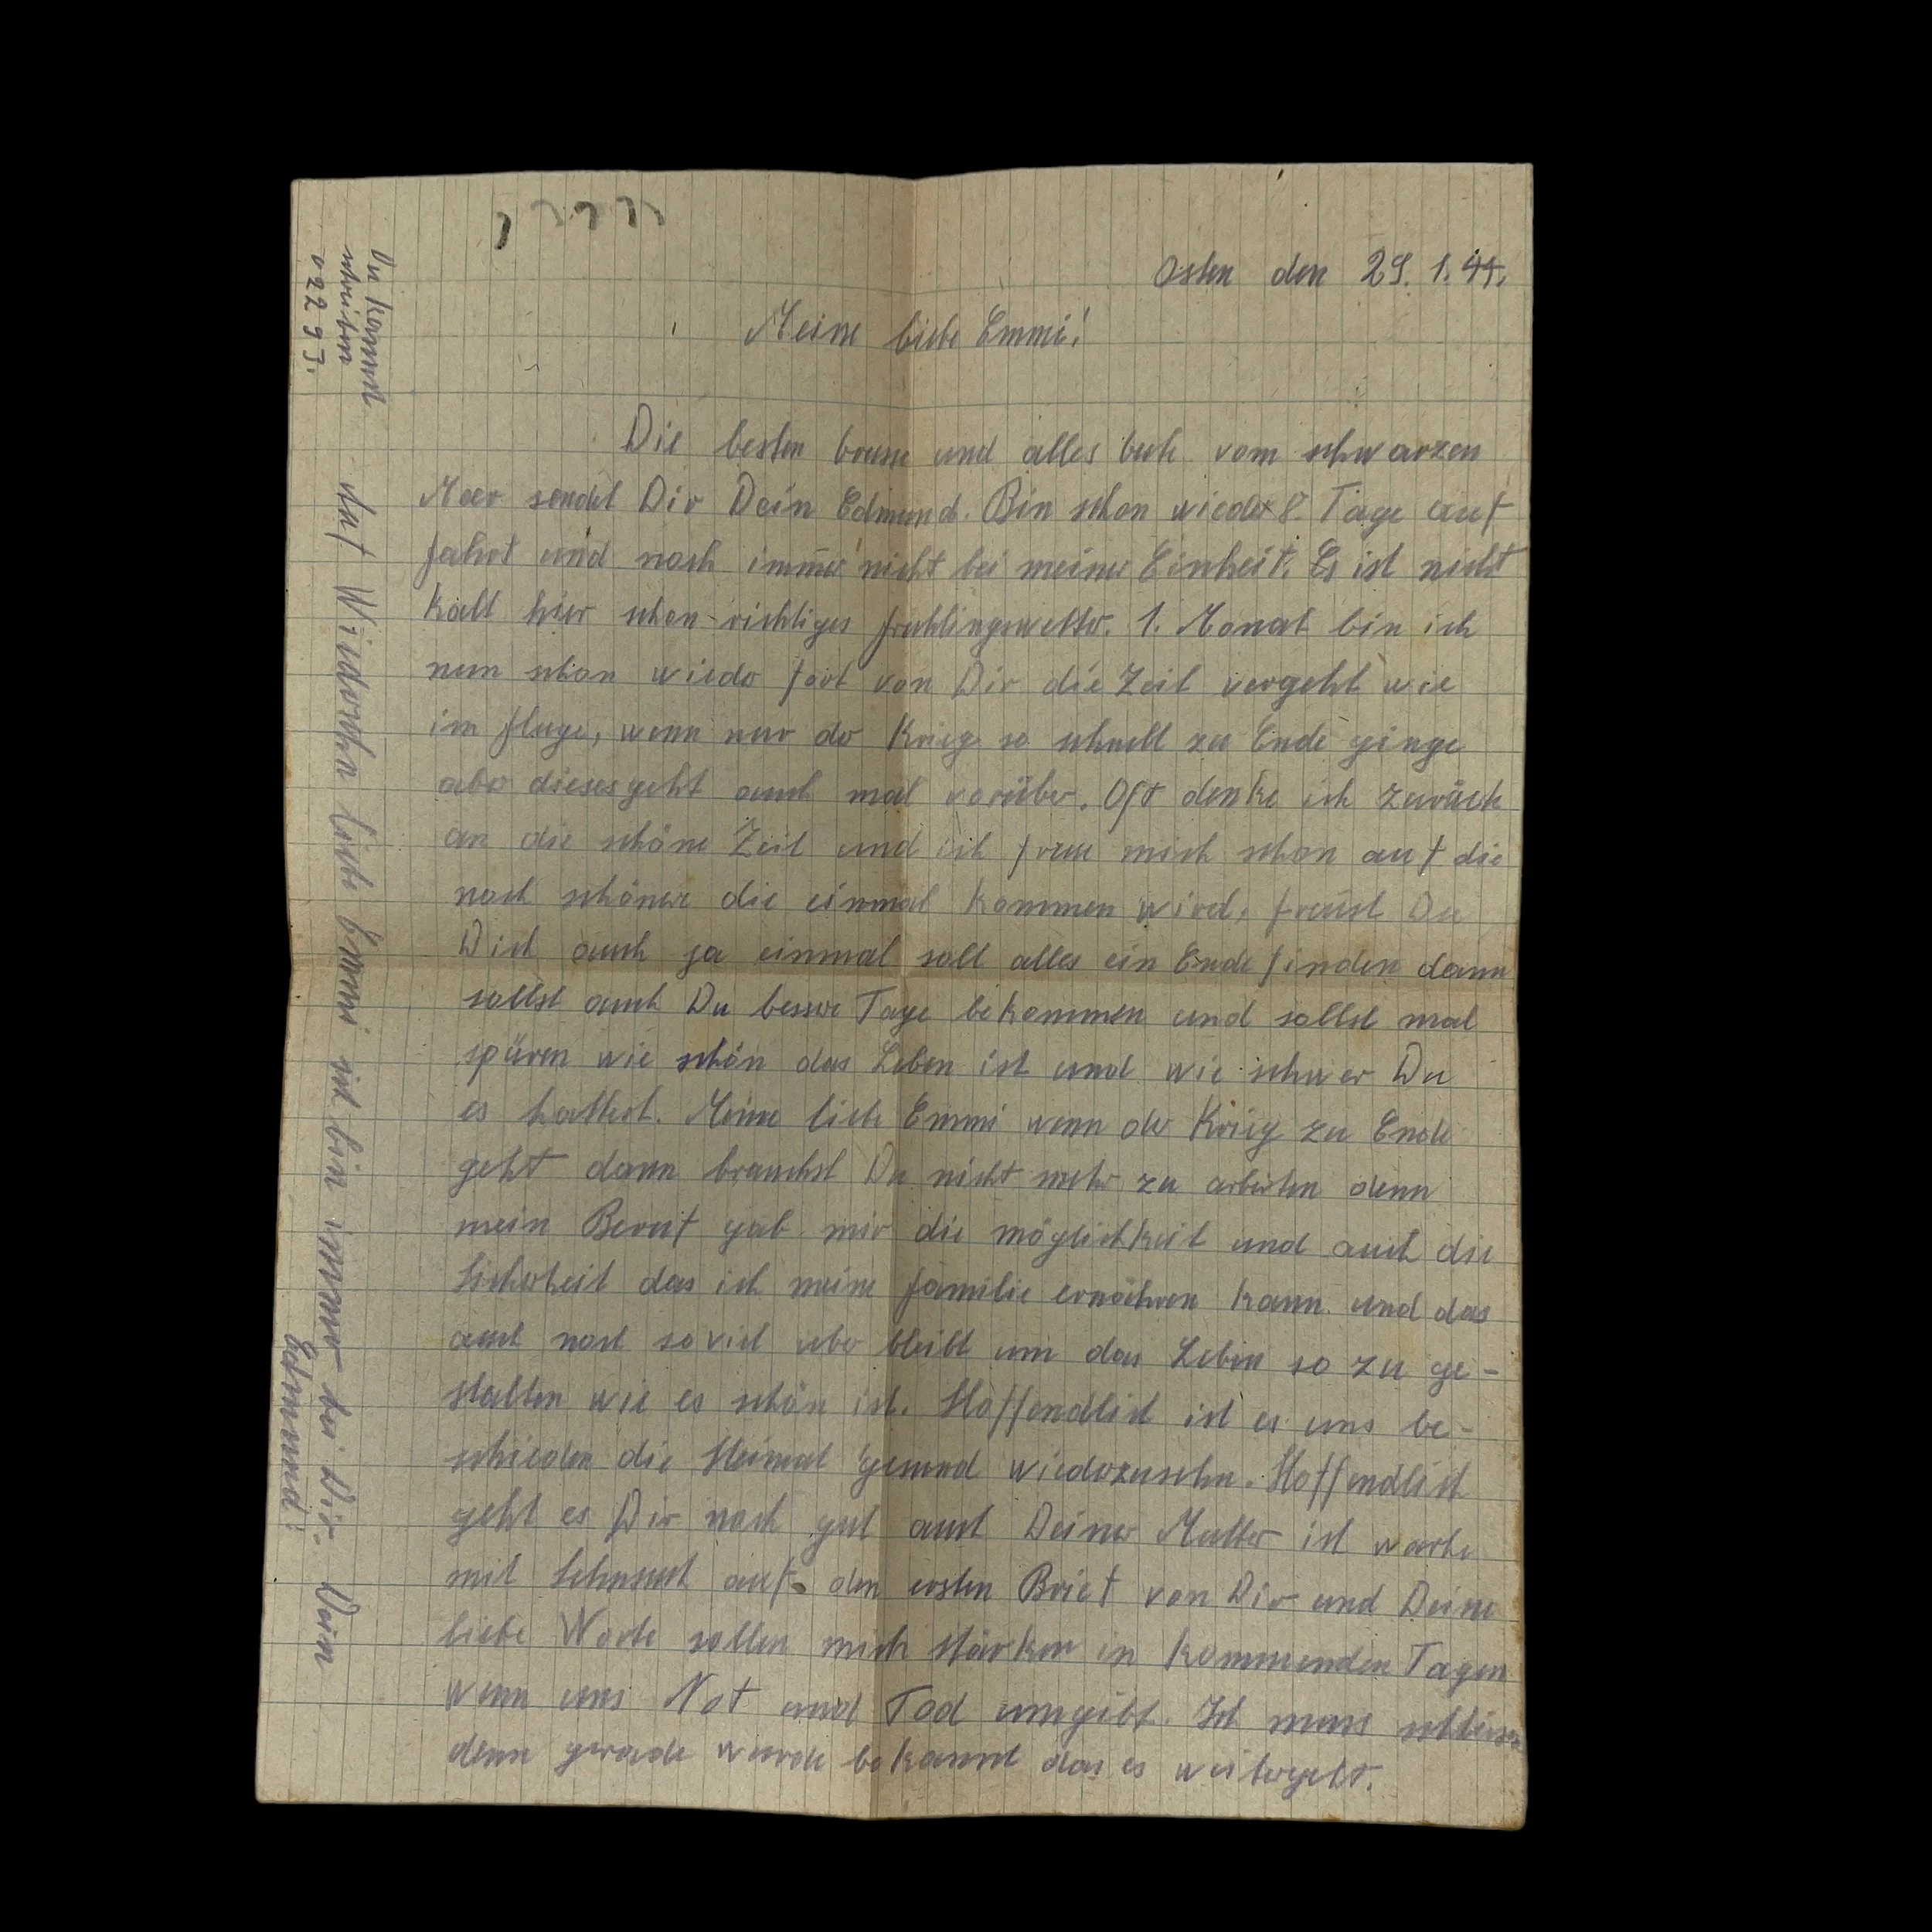 Osten den 29. 1. 44.
Meine liebe Emmi!
Die besten Grüsse und alles liebe vom schwarzen
Meer sendet Dir Dein Edmund. Bin schon wieder 8. Tage auf
fahrt und noch immer nicht bei meiner Einheit. Es ist nicht
kalt hier schon richtiges frühlingswetter. 1. Monat bin ich
nun schon wieder fort von Dir die Zeit vergeht wie
im fluge, wenn nur der Krieg so schnell zu Ende ginge
aber dieses geht auch mal vorüber. Oft denke ich zurück
an die schöne Zeit und ich freue mich schon auf die
noch schönere die einmal kommen wird, freust Du
Dich auch ja einmal soll alles ein Ende finden dann
sollst auch Du bessere Tage bekommen und sollst mal
spüren wie schön das Leben ist und wie schwer Du
es hattest. Meine liebe Emmi wenn der Krieg zu Ende
geht dann brauchst Du nicht mehr zu arbeiten denn
mein Beruf gab mir die möglichkeit und auch die
Sicherheit das ich meine familie ernähren kann und das
auch noch soviel über bleibt um das Leben so zu ge-
stalten wie es schön ist. Hoffendlich ist es uns be-
schieden die Heimat gesund wiederzusehn. Hoffendlich
geht es Dir noch gut auch Deiner Mutter ich warte
mit Sehnsucht auf den ersten Brief von Dir und Deine
liebe Worte sollen mich stärken in kommenden Tagen
wenn uns Not und Tod umgibt. Ich muss schliessen
denn gerade wurde bekannt das es weitergeht.
Auf Wiedersehn liebe Emmi ich bin immer bei Dir. Dein
Edmund!
Du kannst
schreiben
02293.